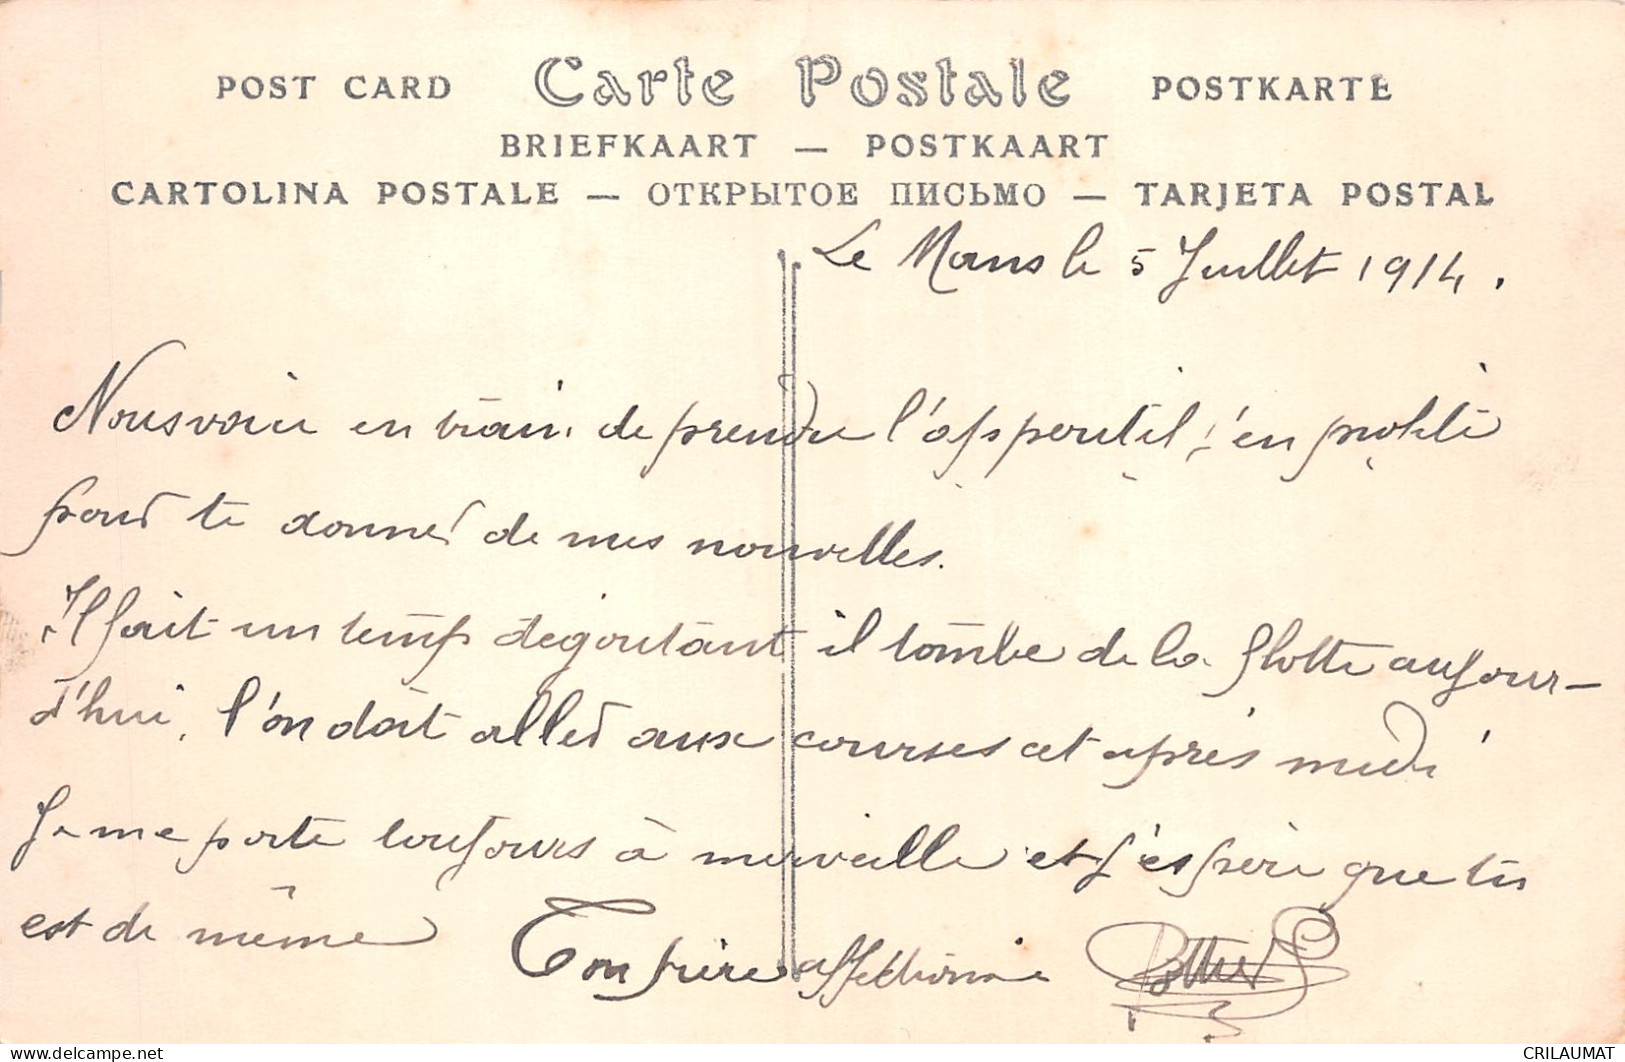 POST CARD Carte Postale POSTKARTE
BRIEFKAART — POSTKAART
CARTOLINA POSTALE — ОТКРЫТОЕ ПИСЬМО — TARJETA POSTAL
Le Mans le 5 Juillet 1914.
Nous voici en train de prendre l'apperitif, j'en profite
pour te donner de mes nouvelles.
Il fait un temps dégoutant il tombe de la flotte aujour-
d'hui, l'on doit aller aux courses cet après midi
Je me porte toujours à merveille et j'espère que tu
est de même Ton frère affectionné
CRILAUMAT